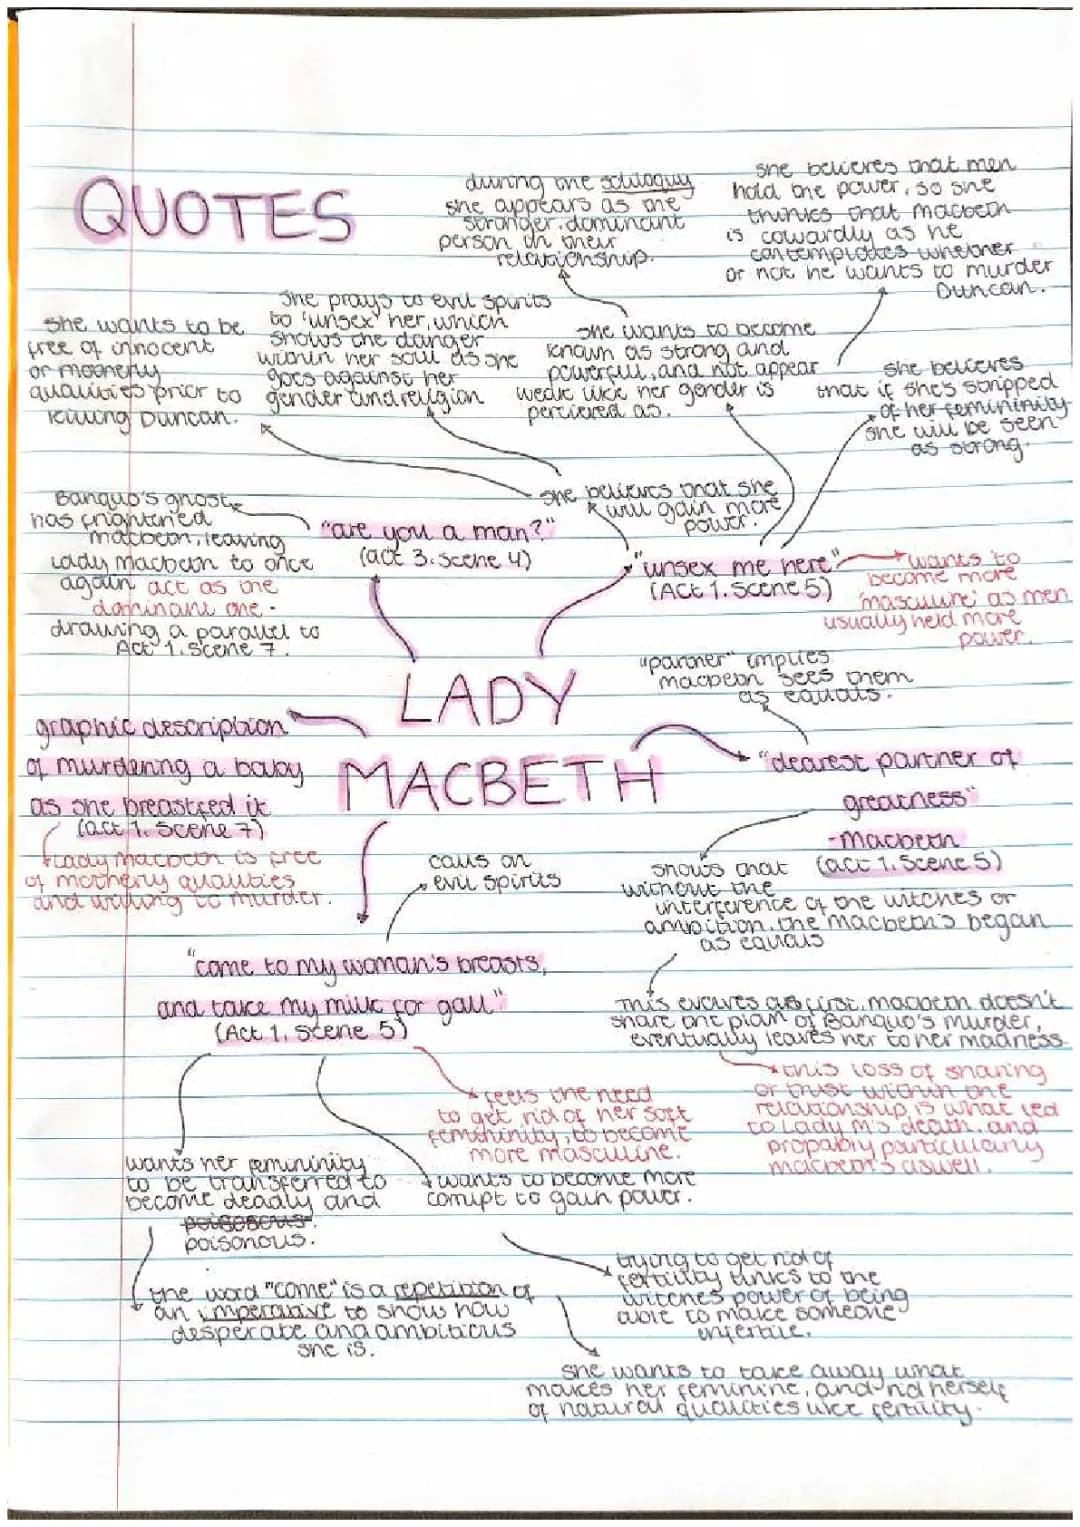 QUOTES
during the soliloquy
she appears as the
stronger, dominant
person in their
relationship.
she believes that men
hold the power, so she
thinks that macbeth
is cowardly as he
contemplates whether
or not he wants to murder
Duncan.
she wants to be
free of innocent
or motherly
qualities prior to
killing Duncan.
She prays to evil spirits
to 'unsex' her, which
shows the danger
within her soul as she
goes against her
gender and religion
she wants to become
known as strong and
powerful, and not appear
weak like her gender is
percieved as.
she believes
that if she's stripped
of her femininity
she will be seen
as strong.
she believes that she
will gain more
power.
Banquo's ghost
has frightened
macbeth, leaving
Lady macbeth to once
again act as the
dominant one.
drawing a parallel to
Act 1, Scene 7.
"are you a man?"
(act 3, scene 4)
"unsex me here"
(Act 1, Scene 5)
wants to
become more
'masculine' as men
usually held more
power.
LADY
MACBETH
"partner" implies
macbeth sees them
as equals.
"dearest partner of
greatness"
-Macbeth
(act 1, Scene 5)
graphic description
of murdering a baby
as she breastfed it
(act 1, Scene 7)
Lady macbeth is free
of motherly qualities
and willing to murder.
calls on
evil spirits
shows that
without the
interference of the witches or
ambition, the macbeth's began
as equals
"come to my woman's breasts,
and take my milk for gall"
(Act 1, Scene 5)
This evolves as first, macbeth doesn't
share the plan of Banquo's murder,
eventually leaves her to her madness.
this loss of sharing
or trust within the
relationship is what led
to Lady M's death, and
propably particularly
macbeth's aswell.
feels the need
to get rid of her soft
femininity, to become
more masculine.
wants her femininity
to be transferred to
become deadly and
poisonous.
wants to become more
corrupt to gain power.
the word "come" is a repetition of
an imperative to show how
desperate and ambitious
she is.
trying to get rid of
fertility links to the
witches power of being
able to make someone
infertile.
she wants to take away what
makes her feminine, and rid herself
of natural qualities like fertility.